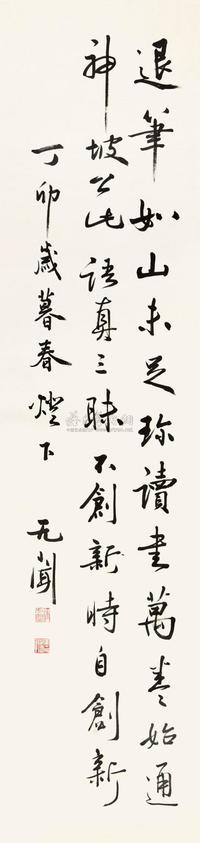 退筆如山未足珍讀書萬卷始通
神坡公此語真三昧不創新時自創新
丁卯歲暮春燈下
无聞